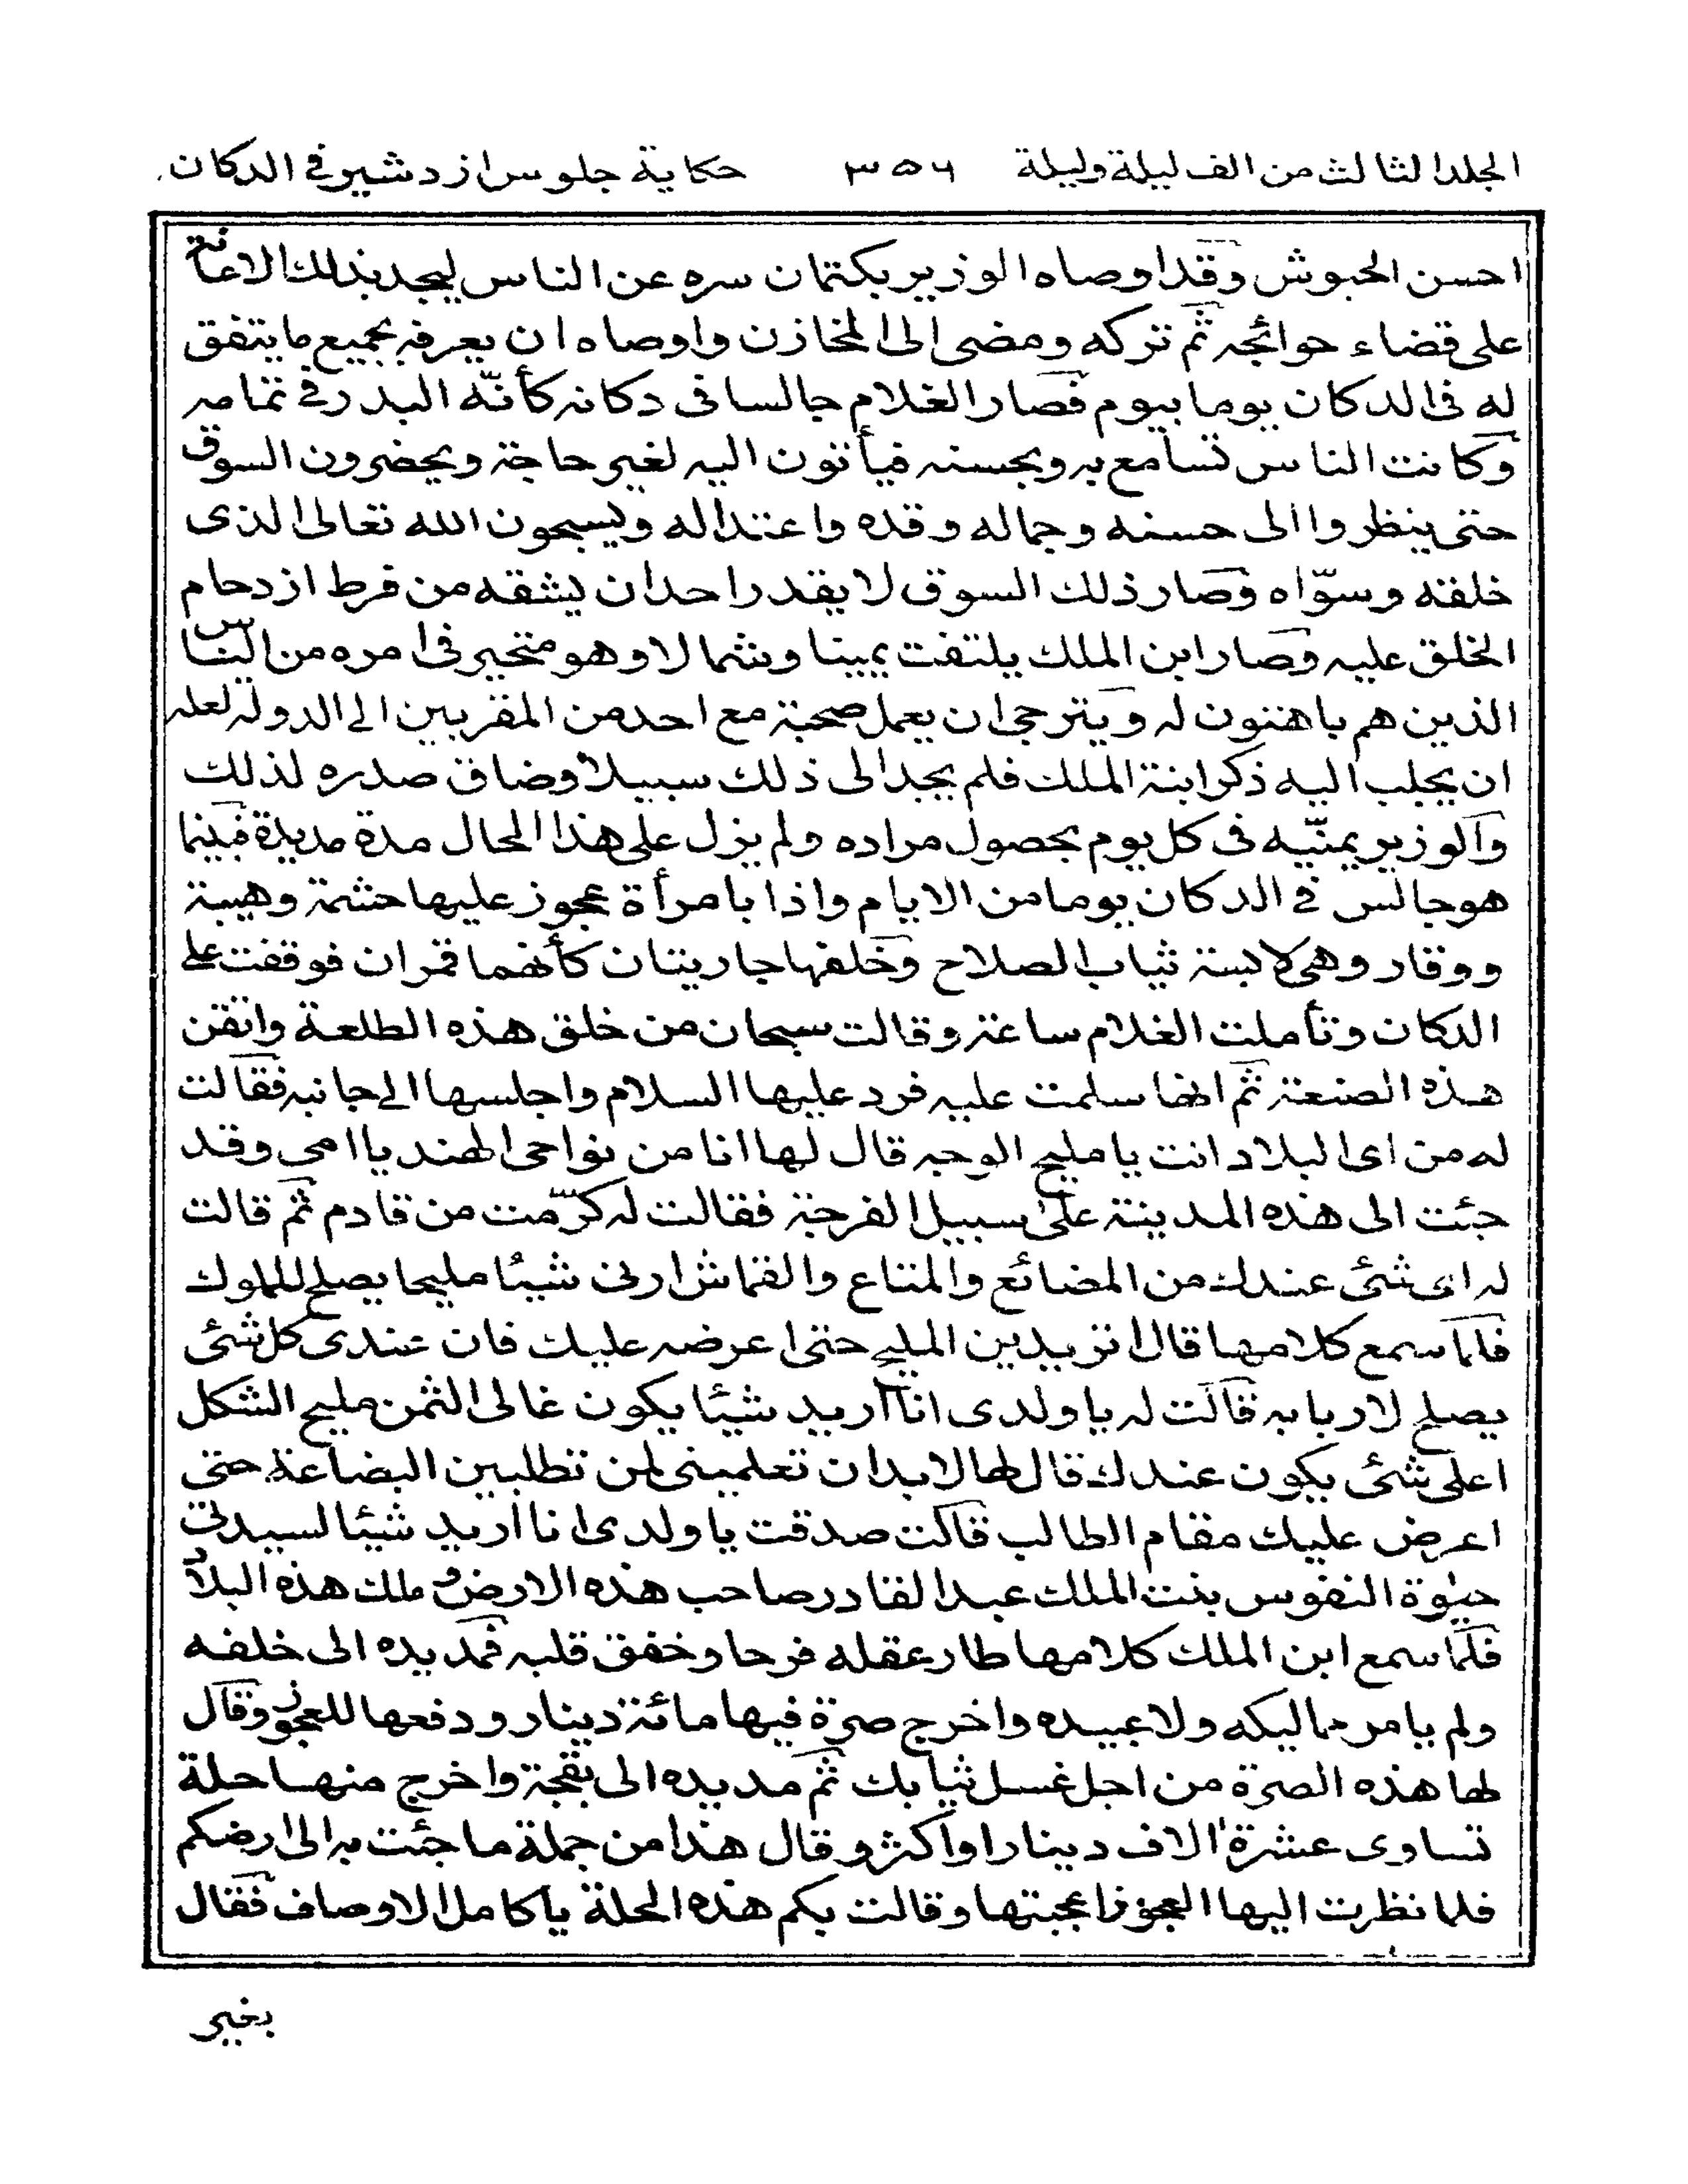 المجلد الثالث من الف ليلة وليلة ٣٥٦ حكاية جلوس ازدشير في الدكان
احسن الحبوش وقد اوصاه الوزير بكتمان سره عن الناس ليجد بذلك الاعانة
على قضاء حوائجه ثم تركه ومضى الى المخازن واوصاه ان يعرفه بجميع ما يتفق
له فى الدكان يوما بيوم فصار الغلام جالسا فى دكانه كأنّه البدر في تمامه
وكانت الناس تسامع به وبحسنه فيأتون اليه لغير حاجة ويحضرون السوق
حتى ينظروا الى حسنه وجماله وقده واعتداله ويسبحون الله تعالى الذى
خلقه وسوّاه وصار ذلك السوق لا يقدر احد ان يشقه من فرط ازدحام
الخلق عليه وصار ابن الملك يلتفت يمينا وشمالا وهو متحير فى امره من الناس
الذين هم باهتون له ويترجى ان يعمل صحبة مع احد من المقربين الى الدولة لعله
ان يجلب اليه ذكر ابنة الملك فلم يجد الى ذلك سبيلا وضاق صدره لذلك
والوزير يمنّيه فى كل يوم بحصول مراده ولم يزل على هذا الحال مدة مديدة فبينما
هو جالس في الدكان يوما من الايام واذا بامرأة عجوز عليها حشمة وهيبة
ووقار وهى لابسة ثياب الصلاح وخلفها جاريتان كأنهما قمران فوقفت على
الدكان وتأملت الغلام ساعة وقالت سبحان من خلق هذه الطلعة واتقن
هذه الصنعة ثم انها سلمت عليه فرد عليها السلام واجلسها الى جانبه فقالت
له من اى البلاد انت يا مليح الوجه قال لها انا من نواحى الهند يا امى وقد
جئت الى هذه المدينة على سبيل الفرجة فقالت له كرّمت من قادم ثم قالت
له اى شئ عندك من المضائع والمتاع والقماش ارنى شيئا مليحا يصلح للملوك
فلما سمع كلامها قال اتريدين المليح حتى اعرضه عليك فان عندى كل شئ
يصلح لاربابه قالت له يا ولدى انا اريد شيئا يكون غالى الثمن مليح الشكل
اعلى شئ يكون عندك قال لها لابد ان تعلمينى لمن تطلبين البضاعة حتى
اعرض عليك مقام الطالب قالت صدقت يا ولدى انا اريد شيئا لسيدتى
حيوة النفوس بنت الملك عبد القادر صاحب هذه الارض وملك هذه البلاد
فلما سمع ابن الملك كلامها طار عقله فرحا وخفق قلبه فمد يده الى خلفه
ولم يامر مماليكه ولا عبيده واخرج صرة فيها مائة دينار ودفعها للعجوز وقال
لها هذه الصرة من اجل غسل ثيابك ثم مد يده الى بقجة واخرج منها حلة
تساوى عشرة الاف دينارا واكثر وقال هذا من جملة ما جئت به الى ارضكم
فلما نظرت اليها العجوز اعجبتها وقالت بكم هذه الحلة يا كامل الاوصاف فقال
بغير